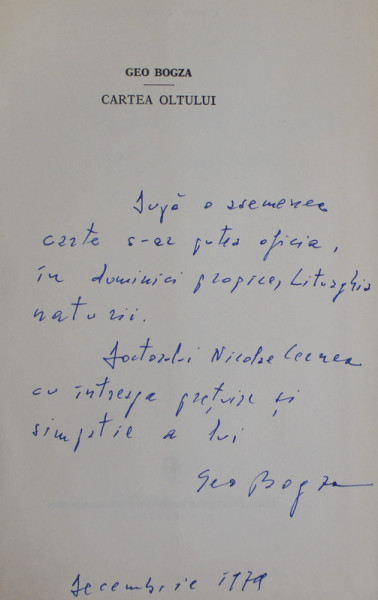 GEO BOGZA
CARTEA OLTULUI
După o asemenea
carte s-ar putea oficia,
în duminici propice, Liturghia
naturii.
Doctorului Nicolae
cu întreaga prețuire și
simpatie a lui
Geo Bogza
Decembrie 1979